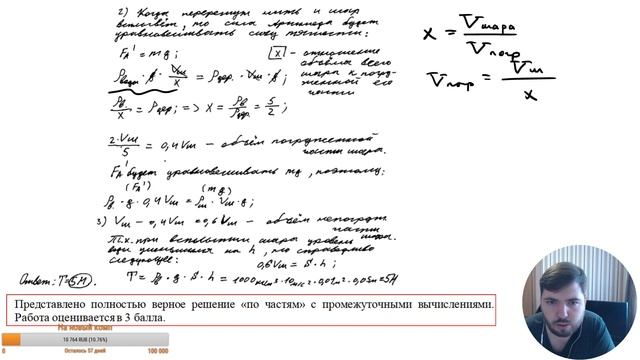 2) Когда перережут нить и шар
всплывёт, то сила Архимеда будет
уравновешивать силу тяжести:
F_A' = mg;
x - отношение
объёма всего
шара к погру-
женной его
части
ρводы · g · Vш/x = ρдер. · Vш · g;
ρв/x = ρдер; => x = ρв/ρдер = 5/2;
2·Vш/5 = 0,4Vш - объём погруженной
части шара.
F_A' будет уравновешивать mg, поэтому:
(F_A') (mg)
ρв · g · 0,4Vш = ρш · Vш · g;
3) Vш - 0,4Vш = 0,6Vш - объём непогруж.
части
шара.
Т.к. при всплытии шара уровень
воды уменьшился на h, то справедливо
следующее: 0,6Vш = S·h;
T = ρв · g · S · h = 1000кг/м³ · 10м/с² · 0,01м² · 0,05м = 5Н
Ответ: T = 5Н.
x = Vшара/Vпогр
Vпогр = Vш/x
Представлено полностью верное решение «по частям» с промежуточными вычислениями.
Работа оценивается в 3 балла.
На новый комп
10 764 RUB (10.76%)
0 Осталось 57 дней 100 000